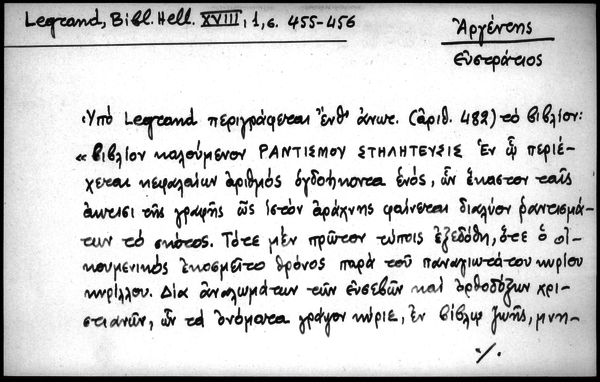 Legrand, Bibl. Hell. XVIII, 1, σ. 455-456
Ἀργέντης
Εὐστράτιος
Ὑπὸ Legrand περιγράφεται ἔνθ' ἀνωτ. (ἀριθ. 482) τὸ βιβλίον:
«Βιβλίον καλούμενον ΡΑΝΤΙΣΜΟΥ ΣΤΗΛΙΤΕΥΣΙΣ Ἐν ᾧ περιέ-
χεται κεφαλαίων ἀριθμὸς ὀγδοήκοντα ἑνός, ὧν ἕκαστον ταῖς
ἀκτῖσι τῆς γραφῆς ὡς ἱστὸν ἀράχνης φαίνεται διαλύον ῥαντισμά-
των τὸ σκότος. Τότε μὲν πρῶτον τύποις ἐξεδόθη, ὅτε ὁ οἰ-
κουμενικὸς ἐκοσμεῖτο θρόνος παρὰ τοῦ παναγιωτάτου κυρίου
κυρίλλου. Διὰ ἀναλωμάτων τῶν εὐσεβῶν καὶ ὀρθοδόξων χρι-
στιανῶν, ὧν τὰ ὀνόματα γράψον κύριε, ἐν βίβλῳ ζωῆς, μνη-
./.